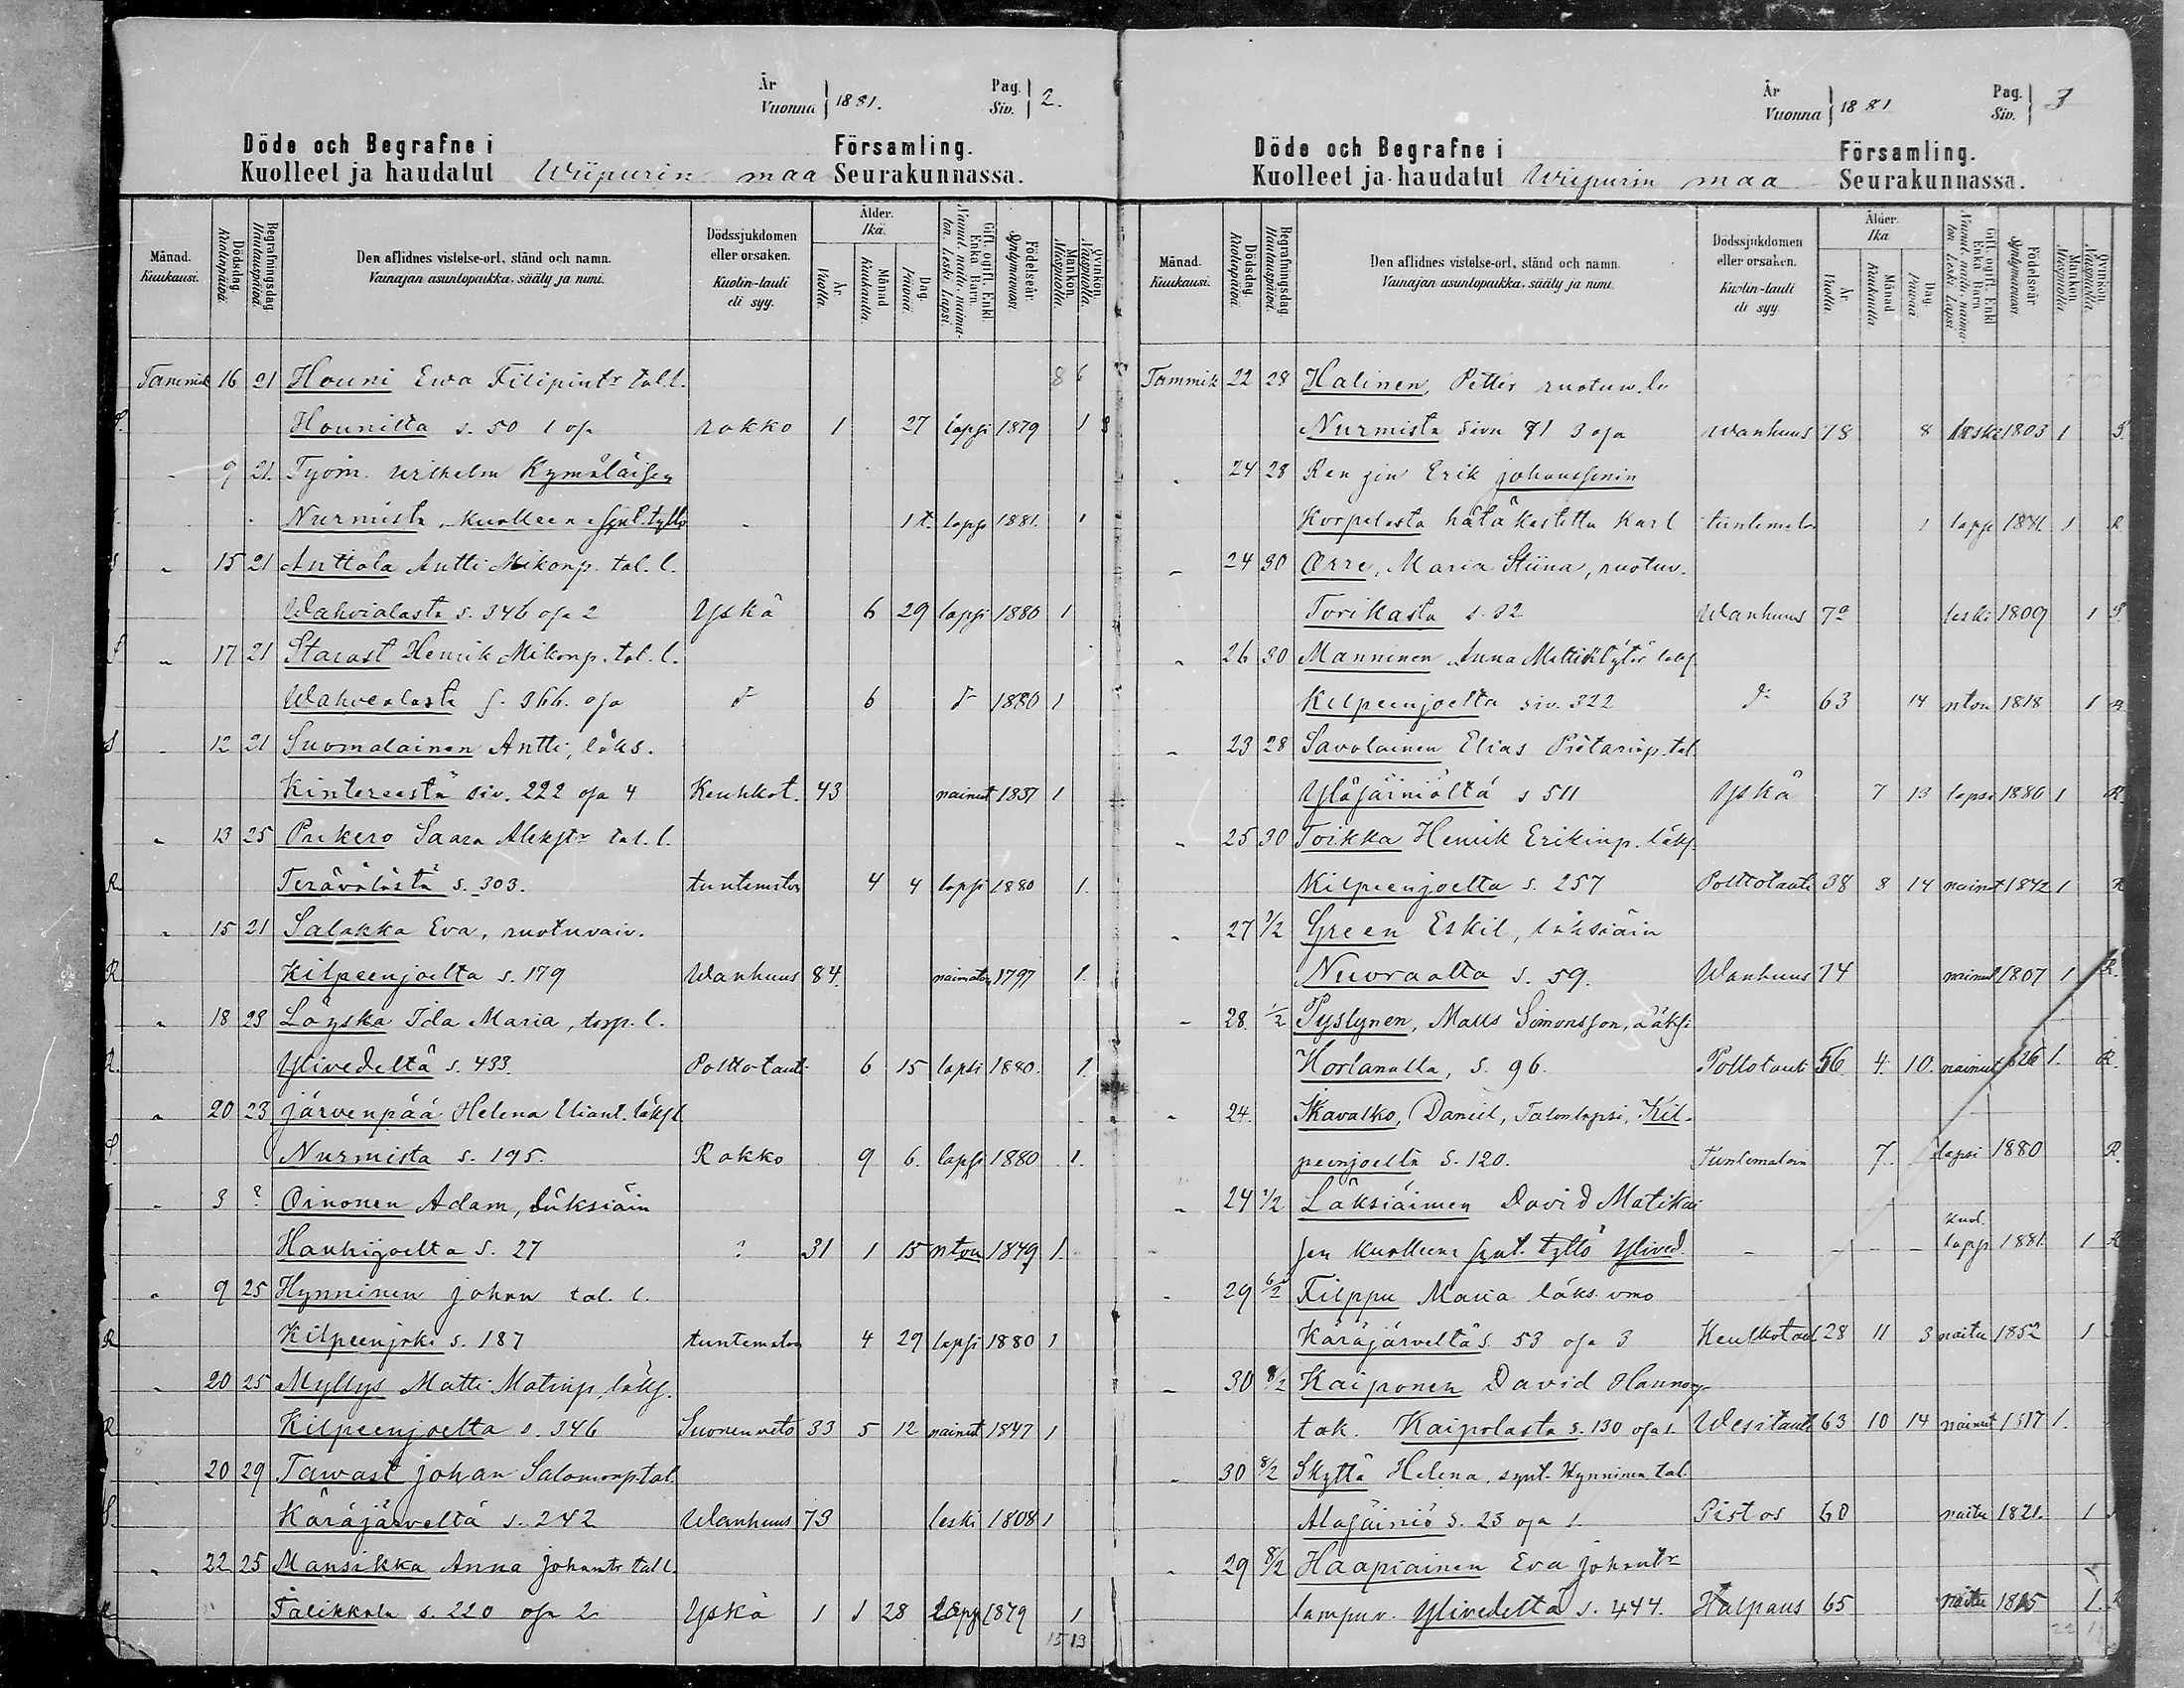 År
Vuonna } 1881.
Pag.
Siv. } 2.
Döde och Begrafne i Församling.
Kuolleet ja haudatut Wiipurin maa Seurakunnassa.
Månad. Kuukausi.
Dödsdag. Kuolinpäivä.
Begrafningsdag. Hautauspäivä.
Den aflidnes vistelse-ort, stånd och namn.
Vainajan asuntopaikka, sääty ja nimi.
Dödssjukdomen eller orsaken.
Kuolin-tauti eli syy.
Ålder. Ikä.
År. Vuotta.
Månad Kuukautta.
Dag. Päivää.
Gift, ogift, Enkl. Enka Barn.
Nainut, naitu, naimaton. Leski. Lapsi.
Födelseår. Syntymävuosi.
Mankön. Miespuolia.
Qvinkön. Naispuolia.
Tammik 16 21 Houni Ewa Filipintr tal.l. 8 6
S. Hounilta s. 50 1 osa rokko 1 27 lapsi 1879 1
" 9 21. Työm. Wilhelm Kymäläisen
Nurmista, kuolleena synt. tyttö - 1 t. lapsi 1881. 1
S " 15 21 Anttola Antti Mikonp. tal. l.
Wahvialasta s. 346 osa 2 Yskä 6 29 lapsi 1880 1
S " 17 21 Starast Henrik Mikonp. tal. l.
Wahvealasta s. 366. osa d:o 6 d:o 1880 1
S " 12 21 Suomalainen Antti, läks.
Kintereestä siv. 222 osa 4 Keuhkot. 43 nainut 1837 1
" 13 25 Pukero Saara Alekstr tal. l.
R. Terävälästä s. 303. tuntematon 4 4 lapsi 1880 1.
" 15 21 Salakka Eva, ruotuvaiv.
R Kilpeenjoelta s. 179 Wanhuus 84. naimaton 1797 1.
" 18 23 Löyska Ida Maria, torp. l.
R. Ylivedeltä s. 433. Polttotauti 6 15 lapsi 1880. 1.
" 20 23 Järvenpää Helena Eliant. läks l
S. Nurmista s. 195. Rokko 9 6. lapsi 1880 1.
" 3 ? Oinonen Adam, läksiäin
Hanhijoelta s. 27 ? 31 1 15 nton 1849 1.
" 9 25 Hynninen Johan tal. l.
R Kilpeenjoki s. 187 tuntematon 4 29 lapsi 1880 1
" 20 25 Myllys Matti Matinp, läks.
R Kilpeenjoelta s. 346 Suonenveto 33 5 12 nainut 1847 1
" 20 29 Tawast Johan Salomonp. tal.
S. Käräjärveltä s. 242 Wanhuus 73 leski 1808 1
" 22 25 Mansikka Anna Johantr tal l.
R Talikkala s. 220 osa 2 Yskä 1 1 28 Laps 1879 1
15 13
År
Vuonna } 1881
Pag.
Siv. } 3
Döde och Begrafne i Församling.
Kuolleet ja haudatut Wiipurin maa Seurakunnassa.
Månad. Kuukausi.
Dödsdag Kuolinpäivä.
Begrafningsdag Hautauspäivä.
Den aflidnes vistelse-ort, stånd och namn.
Vainajan asuntopaikka, sääty ja nimi.
Dödssjukdomen eller orsaken.
Kuolin-tauti eli syy.
Ålder. Ikä
År. Vuotta.
Månad Kuukautta.
Dag. Päivää.
Gift, ogift, Enkl. Enka Barn.
Nainut, naitu, naimaton. Leski. Lapsi.
Födelseår. Syntymävuosi.
Mankön. Miespuolia.
Qvinkön. Naispuolia.
Tammik 22 28 Halinen, Petter ruotuw. l.
Nurmista sivu 81 3 osa Wanhuus 78 8 leski 1803 1 S.
" 24 28 Rengin Erik Johanssonin
Korpelasta hätäkastettu Karl tuntematon 1 lapsi 1881. 1 R
" 24 30 Orre, Maria Stiina, ruotuv.
Torikasta s. 32 Wanhuus 72 leski 1809 1 S.
" 26 30 Manninen Anna Matintytär läks
Kilpeenjoelta siv. 322 d:o 63 14 nton 1818 1 R
" 23 28 Savolainen Elias Pietarinp. tal.
Yläjärniöltä s 511 Yskä 7 13 lapsi 1880 1 R
" 25 30 Toikka Henrik Erikinp. läks.
Kilpeenjoelta s. 257 Polttotauti 38 8 14 nainut 1842 1 R
" 27 1/2 Green Eskil, läksiäin
Nuoraalta s. 59. Wanhuus 74 nainut 1807 1 R.
" 28. 1/2 Pyslynen, Matts Simonsson, Läksi
Horlanalla, s. 96. Polttotauti 56 4. 10. nainut 1826 1. R.
" 24. Kavalko, Daniel, Talonlapsi, Kil-
peenjoelta s. 120. Tuntematoin 7. lapsi 1880 R.
" 24 1/2 Läksiäimen David Matikai
sen kuolleena synt. tyttö Ylived. - - - - kuol. lapsi 1881. 1 R
" 29 6/2 Filppu Maria läks. vmo
Käräjärveltä s. 53 osa 3 Keuhkotaut 28 11 3 naitu 1852 1
" 30 8/2 Kaiponen David Hannonp
tak. Kaipolasta s. 130 osa 1. Wesitauti 63 10 14 nainut 1817 1.
" 30 8/2 Skyttä Helena, synt. Hynninen tal.
Alasäiniö s. 23 osa 1. Pistos 60 naitu 1821. 1
" 29 8/2 Haapiainen Eva Johantr
lampuv. Ylivedeltä s. 444. Halpaus 65 naitu 1815 1. R
22 11